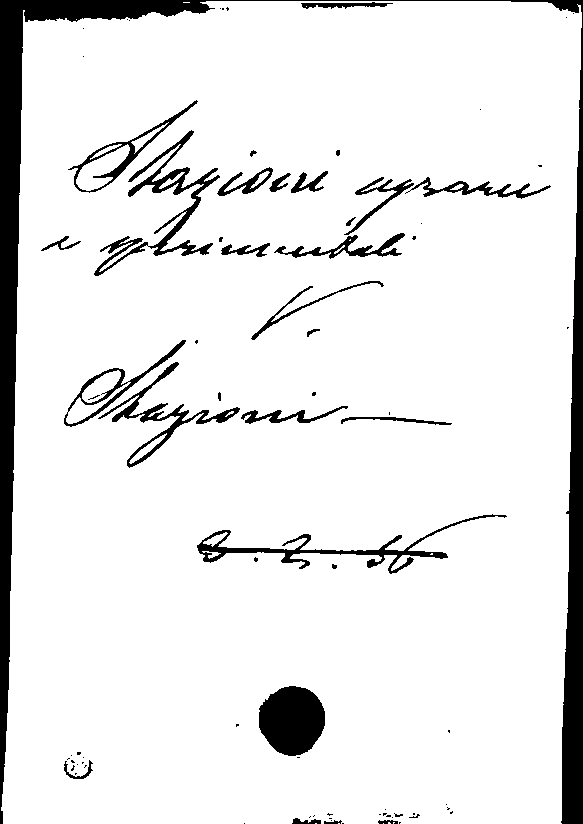 Stazioni agrarie
e sperimentali
V.
Stazioni —
3.2.56